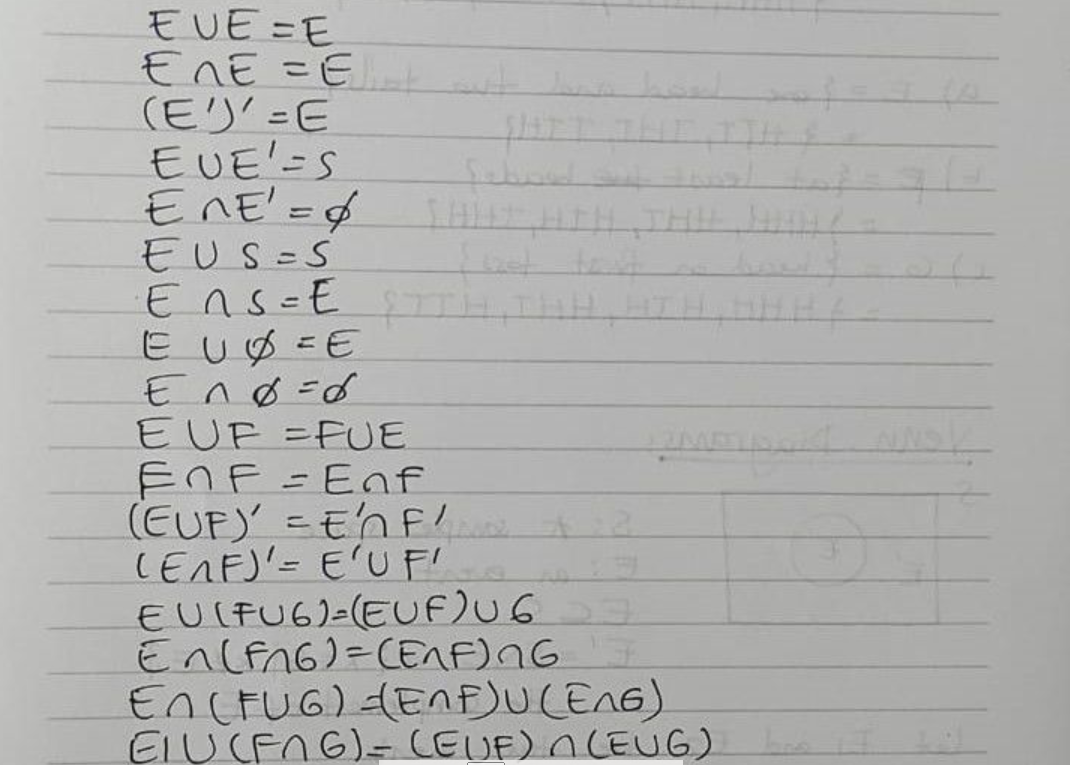 E∪E=E
E∩E=E
(E')'=E
E∪E'=S
E∩E'=φ
E∪S=S
E∩S=E
E∪φ=E
E∩φ=φ
E∪F=F∪E
E∩F=E∩F
(E∪F)'=E'∩F'
(E∩F)'=E'∪F'
E∪(F∪G)=(E∪F)∪G
E∩(F∩G)=(E∩F)∩G
E∩(F∪G)=(E∩F)∪(E∩G)
E∪(F∩G)=(E∪F)∩(E∪G)